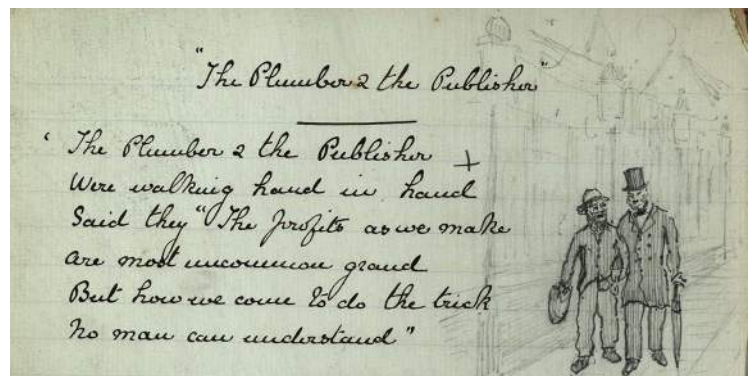 "The Plumber & the Publisher"
"The Plumber & the Publisher +
Were walking hand in hand
Said they "The profits as we make
are most uncommon grand
But how we come to do the trick
No man can understand"